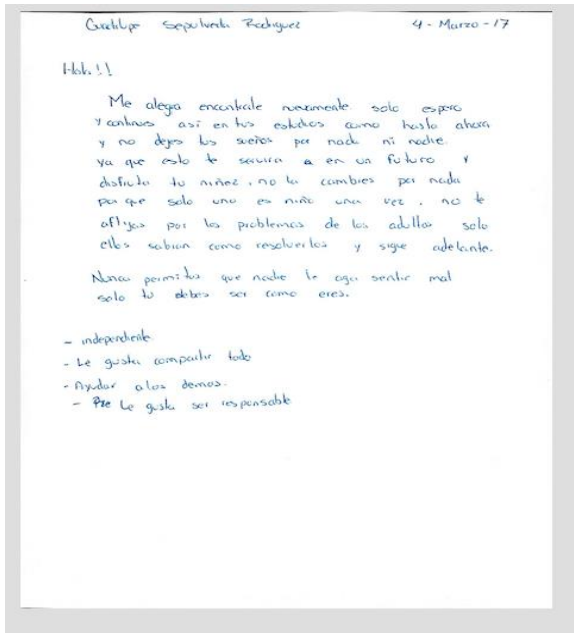 Guadalupe Sepulveda Rodriguez 4-Marzo-17
Hola!!
Me alegra encontrarle nuevamente solo espero
y continues así en tus estudios como hasta ahora
y no dejes tus sueños por nada ni nadie
ya que esto te servira a en un futuro y
disfruta tu niñez, no la cambies por nada
por que solo uno es niño una vez, no te
aflijas por los problemas de los adultos solo
ellos sabran como resolverlos y sigue adelante.
Nunca permitas que nadie te aga sentir mal
solo tu debes ser como eres.
- independiente
- Le gusta compartir todo
- Ayudar a los demas.
- Le gusta ser responsable